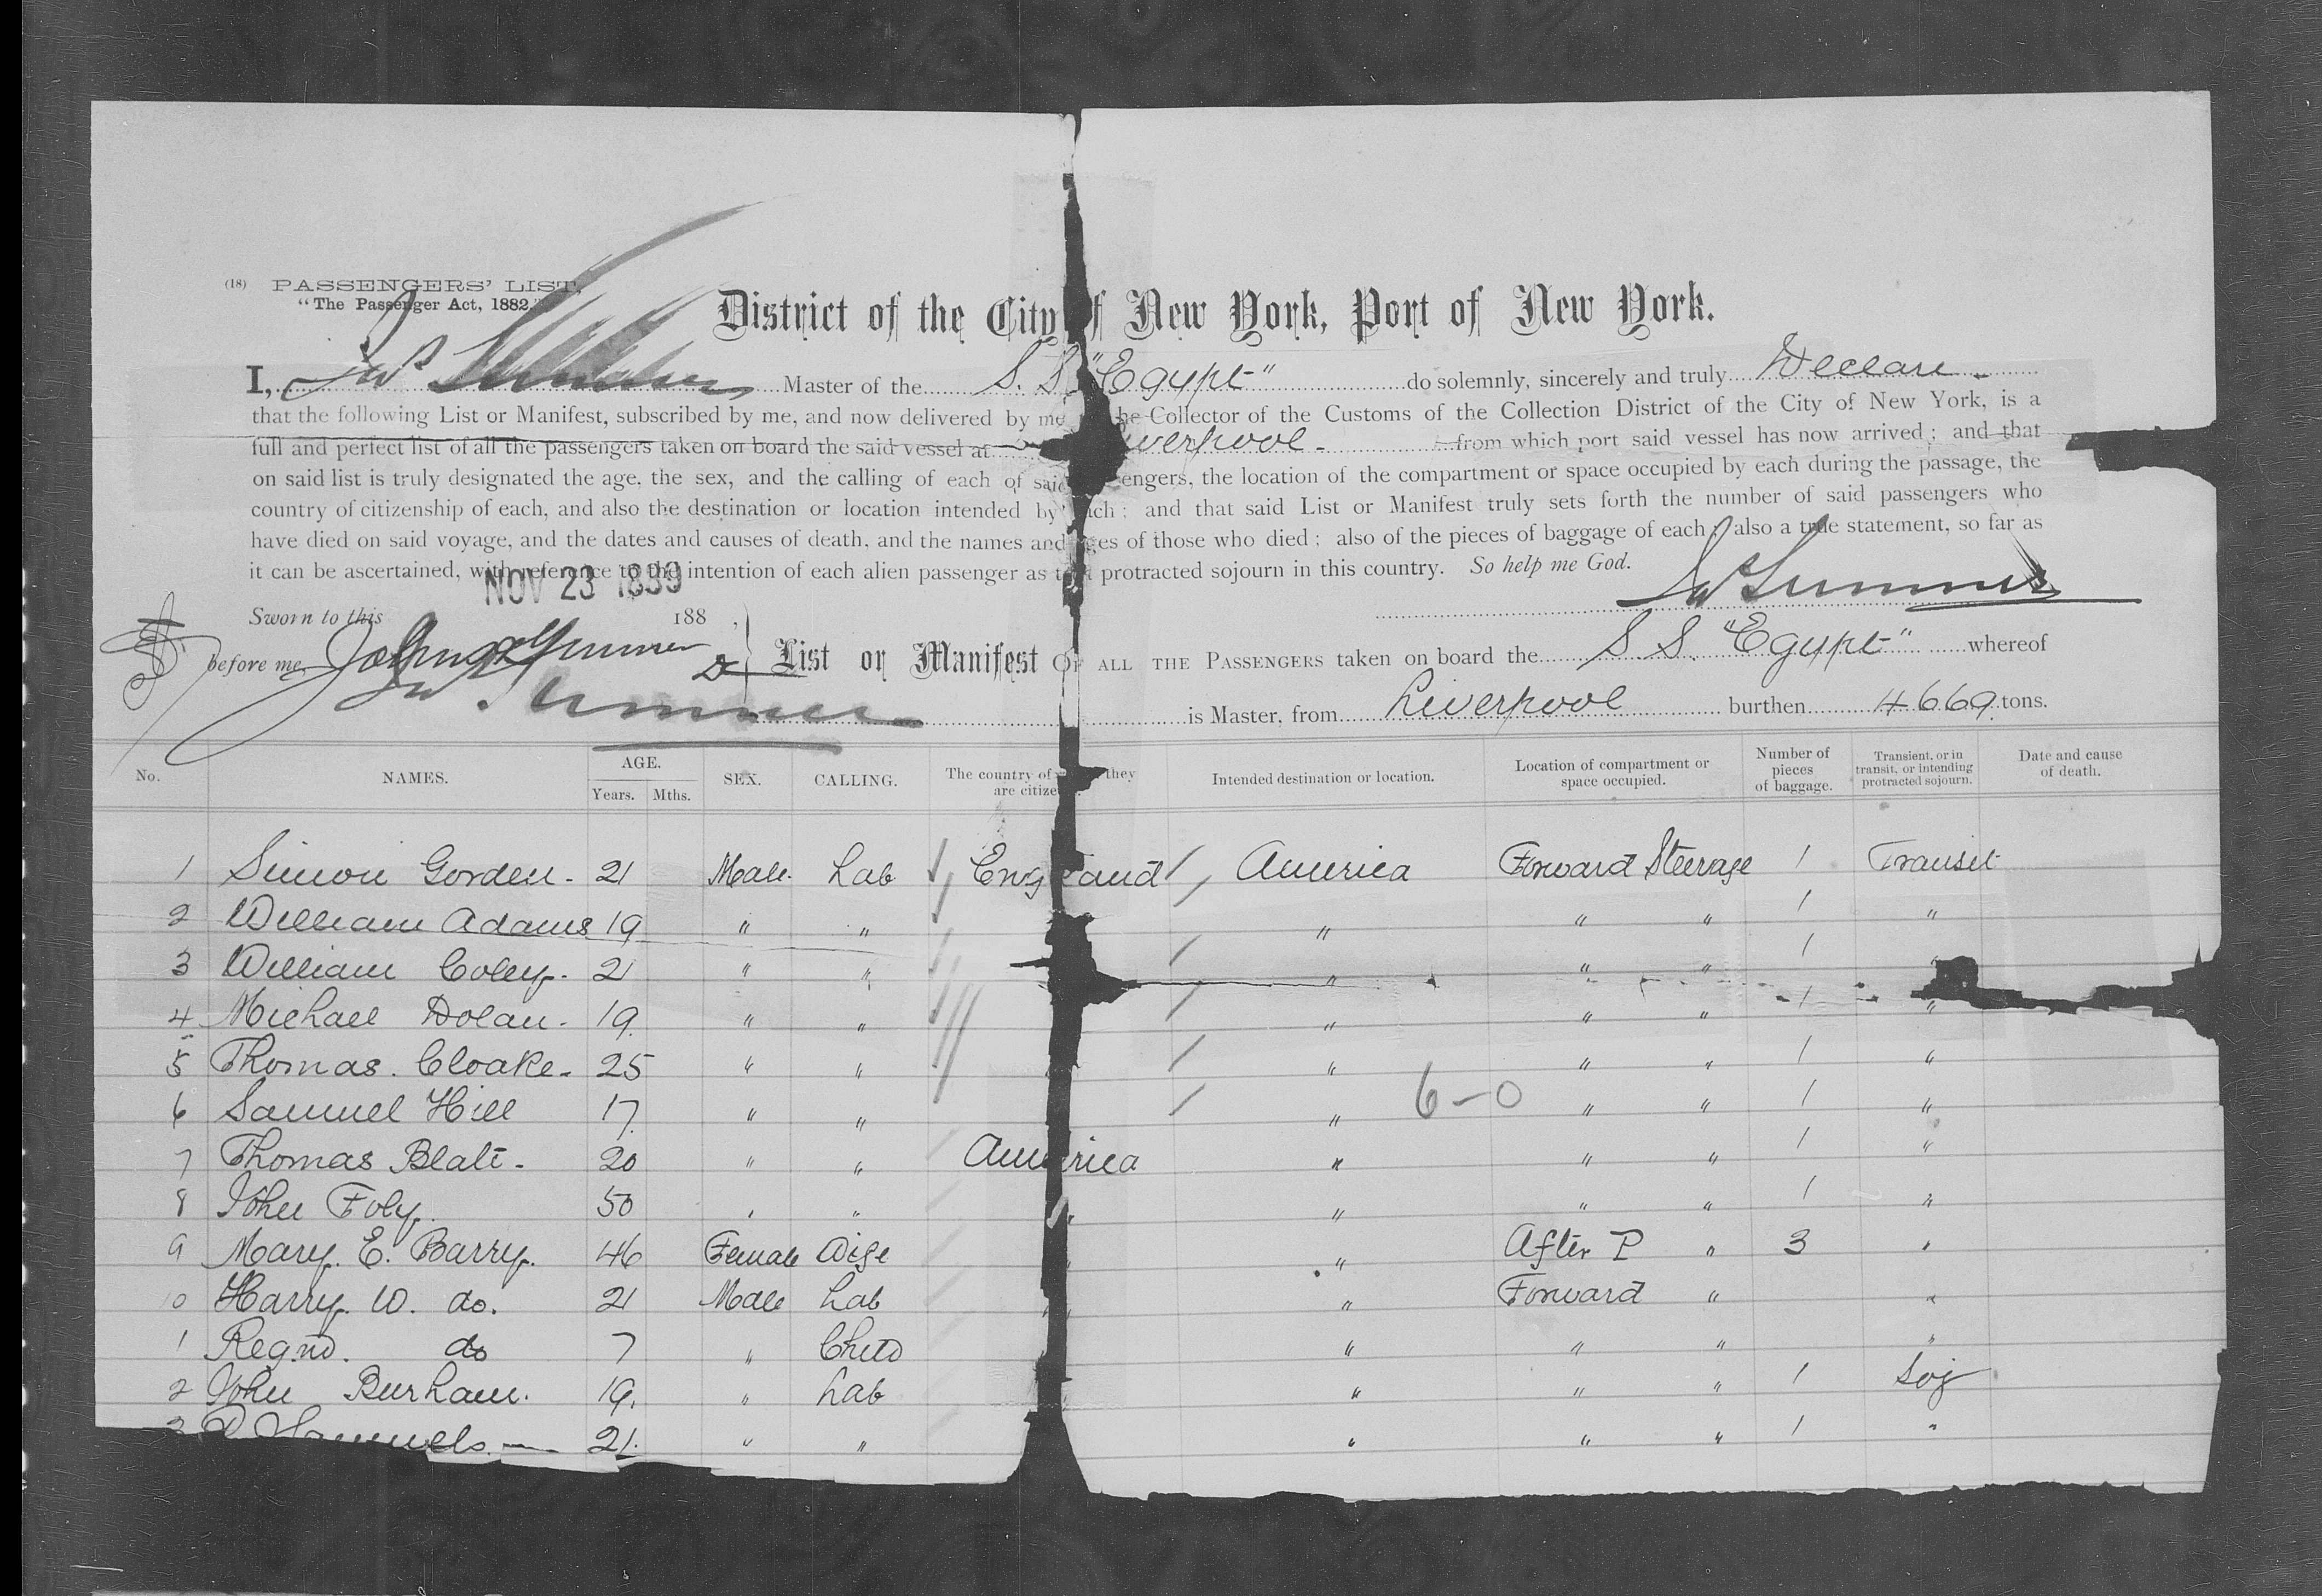 (18) PASSENGERS' LIST,
"The Passenger Act, 1882."
District of the City of New York, Port of New York.
I, Master of the S. S. "Egypt" do solemnly, sincerely and truly Declare
that the following List or Manifest, subscribed by me, and now delivered by me he Collector of the Customs of the Collection District of the City of New York, is a
full and perfect list of all the passengers taken on board the said vessel at verpool. from which port said vessel has now arrived; and that
on said list is truly designated the age, the sex, and the calling of each of said engers, the location of the compartment or space occupied by each during the passage, the
country of citizenship of each, and also the destination or location intended by ach: and that said List or Manifest truly sets forth the number of said passengers who
have died on said voyage, and the dates and causes of death, and the names and ges of those who died; also of the pieces of baggage of each; also a true statement, so far as
it can be ascertained, with reference to the intention of each alien passenger as to a protracted sojourn in this country. So help me God.
NOV 23 1889
Sumner
Sworn to this 188 ,
before me, List or Manifest OF ALL THE PASSENGERS taken on board the S. S. "Egypt" whereof
Sumner is Master, from Liverpool burthen 4669 tons.
No. NAMES. AGE. Years. Mths. SEX. CALLING. The country of they are citize Intended destination or location. Location of compartment or space occupied. Number of pieces of baggage. Transient, or in transit, or intending protracted sojourn. Date and cause of death.
1 Simon Gorden - 21 Male. Lab England America Forward Steerage 1 Transit
2 William Adams 19 " " " " " 1 "
3 William Coley - 21 " " " " " 1 "
4 Michael Dolan - 19. " " " " " 1 "
5 Thomas. Cloake - 25 " " " " " 1 "
6 Samuel Hill 17. " " " 6-0 " " 1 "
7 Thomas Blatt - 20 " " America " " " 1 "
8 John Foly. 50 " " " " " " 1 "
9 Mary. E. Barry. 46 Female Wife " " After P " 3 "
10 Harry. W. do. 21 Male Lab " " Forward " "
1 Regnd. do 7 " Child " " " "
2 John Burham. 19. " Lab " " " 1 Soj
3 21. " " " " " 1 "